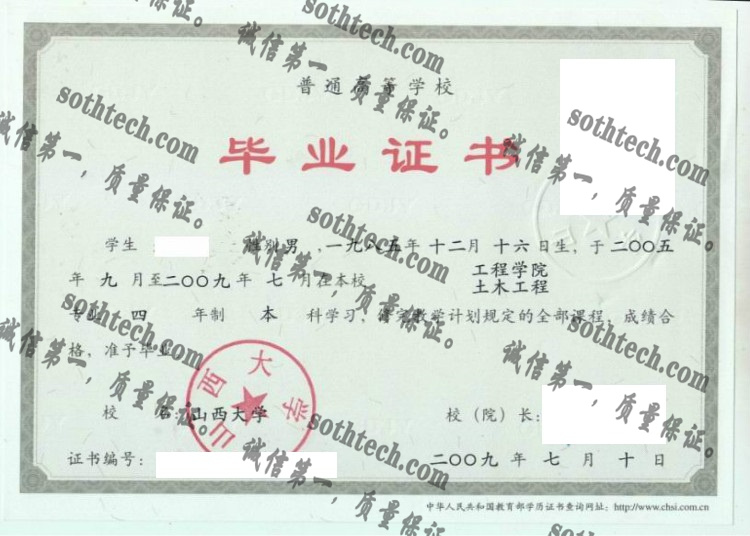 普通高等学校
毕业证书
学生 性别男，一九八五年十二月十六日生，于二〇〇五
年九月至二〇〇九年七月在本校 工程学院
土木工程
专业 四 年制 本 科学习，修完教学计划规定的全部课程，成绩合
格，准予毕业。
山西大学
校 名：山西大学 校（院）长：
证书编号： 二〇〇九年七月十日
中华人民共和国教育部学历证书查询网址：http://www.chsi.com.cn
sothtech.com
诚信第一，质量保证。
sothtech.com
诚信第一，质量保证。
sothtech.com
诚信第一，质量保证。
sothtech.com
诚信第一，质量保证。
sothtech.com
诚信第一，质量保证。
sothtech.com
诚信第一，质量保证。
sothtech.com
诚信第一，质量保证。